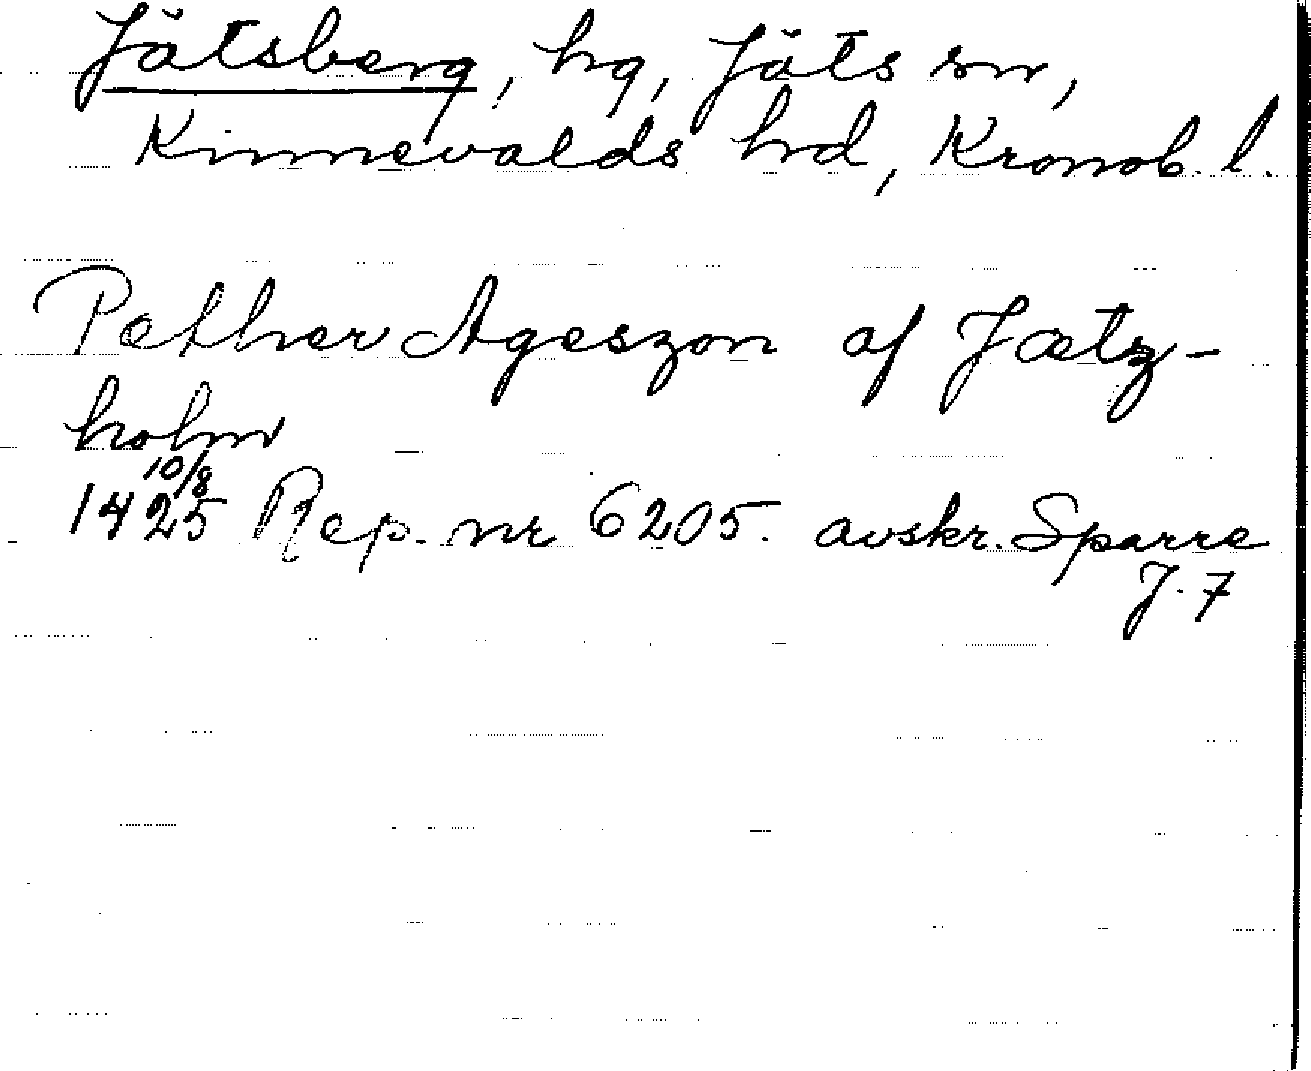 Jätsberg, hg, Jäts sn,
Kinnevalds hd, Kronob. l.
Pæther Ageszon af Jætz-
holm
10/8
1425 Rep. nr 6205. avskr. Sparre
J. 7